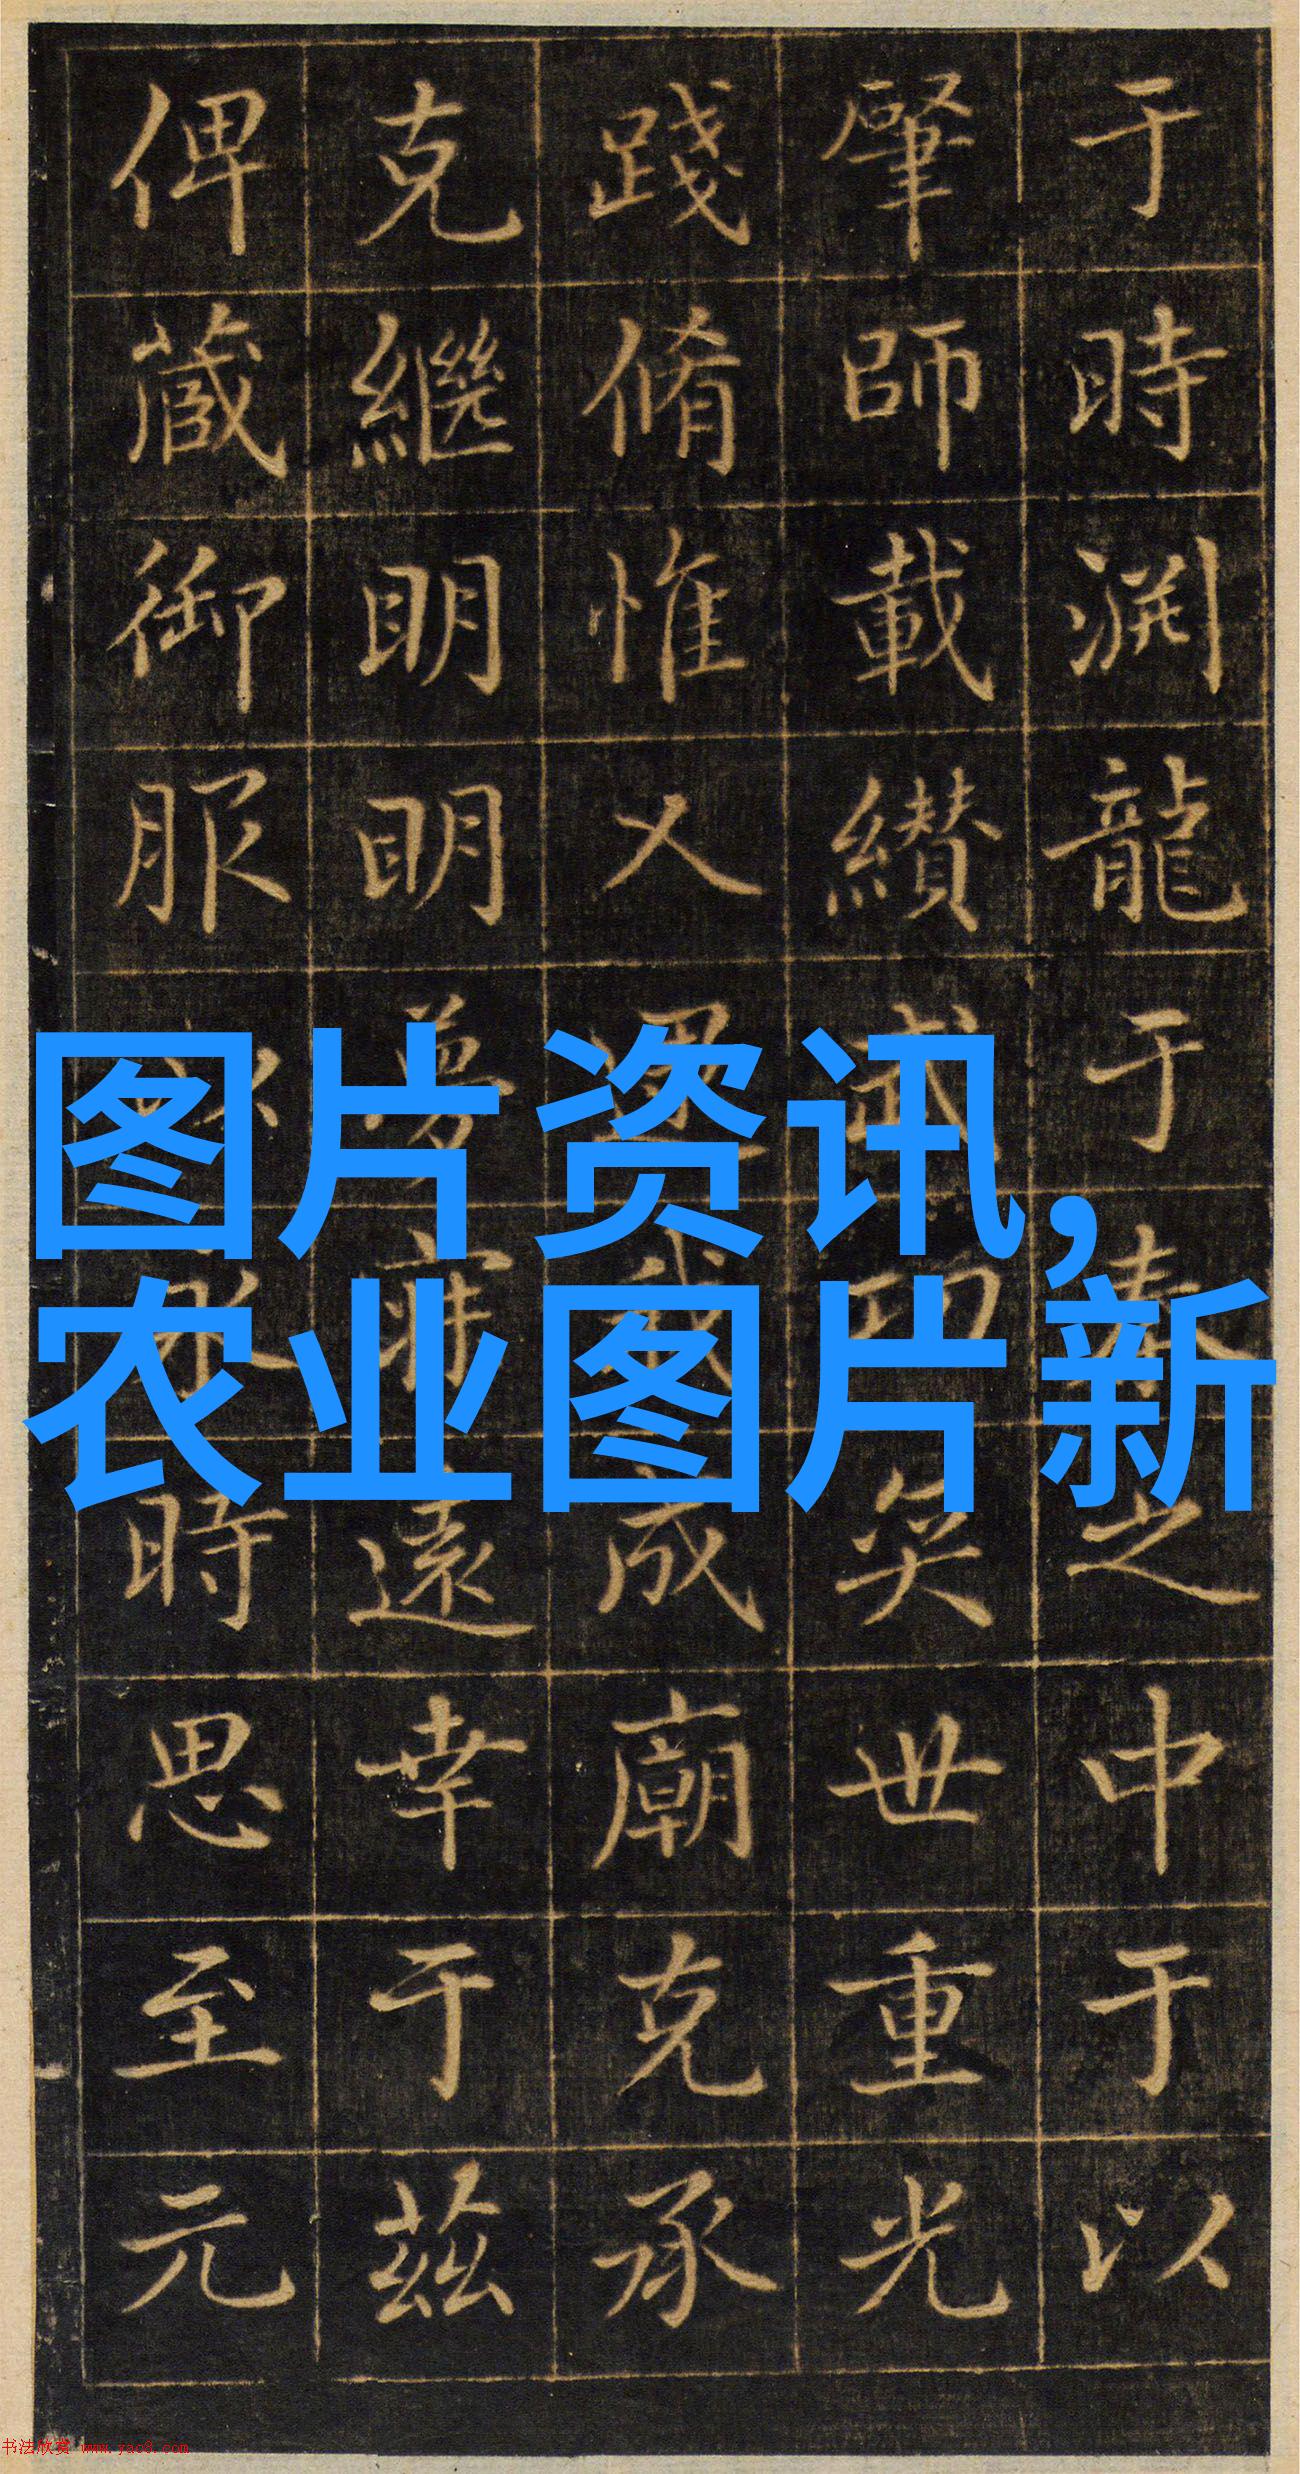 于時渕龍于之中于以
肇師載纘武功矣世重光
踐脩惟乂我成廟克承
克繼明明遠幸于茲
俾蕆御服永時思至元
图片资讯,
农业图片新
书法欣赏 www.yac8.com